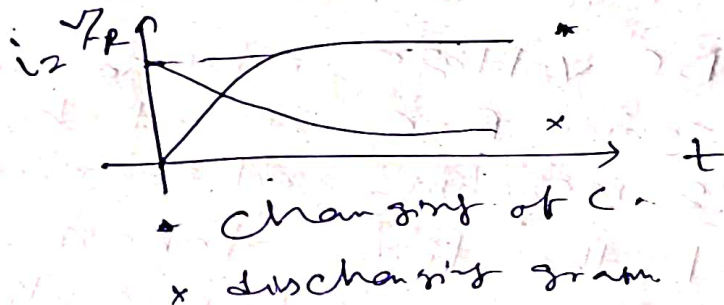 i = V/R
*
x
t
* Charging of C.
x discharging graph